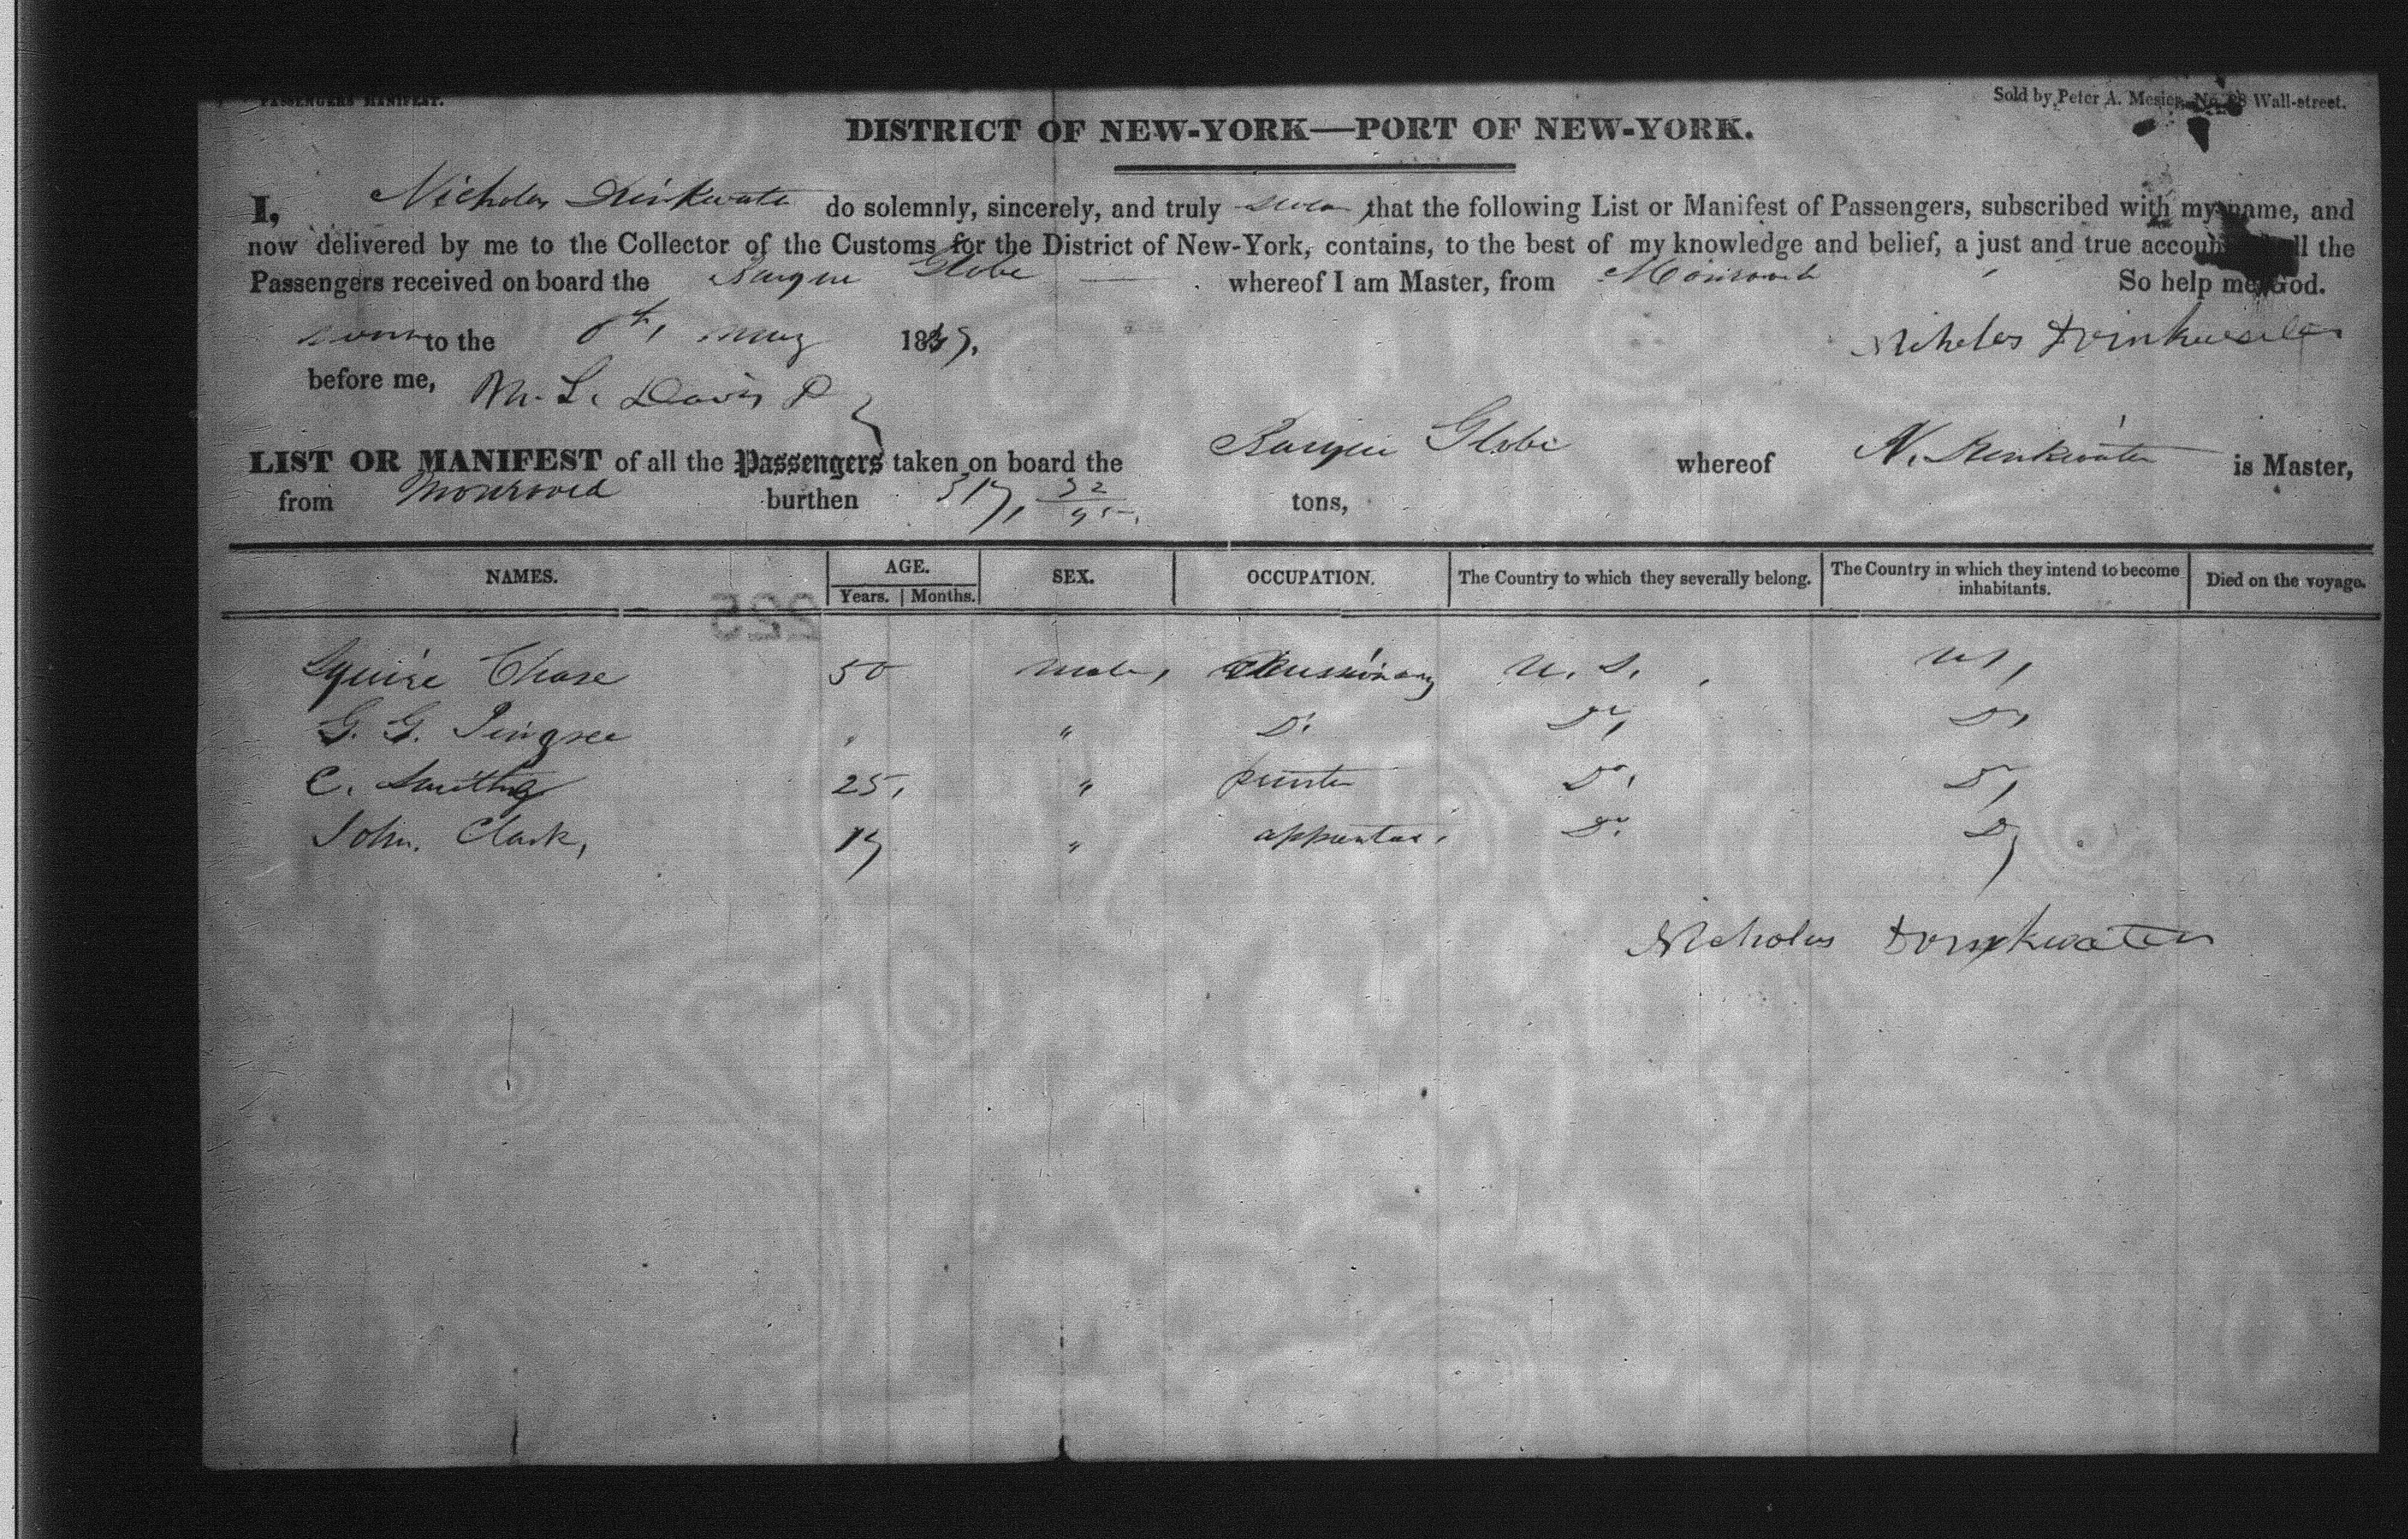 PASSENGERS MANIFEST.
Sold by Peter A. Mesier, No. 28 Wall-street.
DISTRICT OF NEW-YORK—PORT OF NEW-YORK.
I, Nicholas Drinkwater do solemnly, sincerely, and truly swear that the following List or Manifest of Passengers, subscribed with my name, and
now delivered by me to the Collector of the Customs for the District of New-York, contains, to the best of my knowledge and belief, a just and true account all the
Passengers received on board the Barque Globe whereof I am Master, from Monrovia So help me God.
sworn to the 8th, May 1839.
Nicholas Drinkwater
before me, M. L. Davis D
LIST OR MANIFEST of all the Passengers taken on board the Barque Globe whereof N. Drinkwater is Master,
from Monrovia burthen 317, 32/95 tons,
NAMES. AGE. SEX. OCCUPATION. The Country to which they severally belong. The Country in which they intend to become inhabitants. Died on the voyage.
Years. Months.
225
Squire Chase 50 male, Missionary U. S. U S,
G. G. Pingree " " Do. Do, Do,
C. 25, " printer Do, Do,
John. Clark, 19 " apprentice. Do. Do,
Nicholas Drinkwater